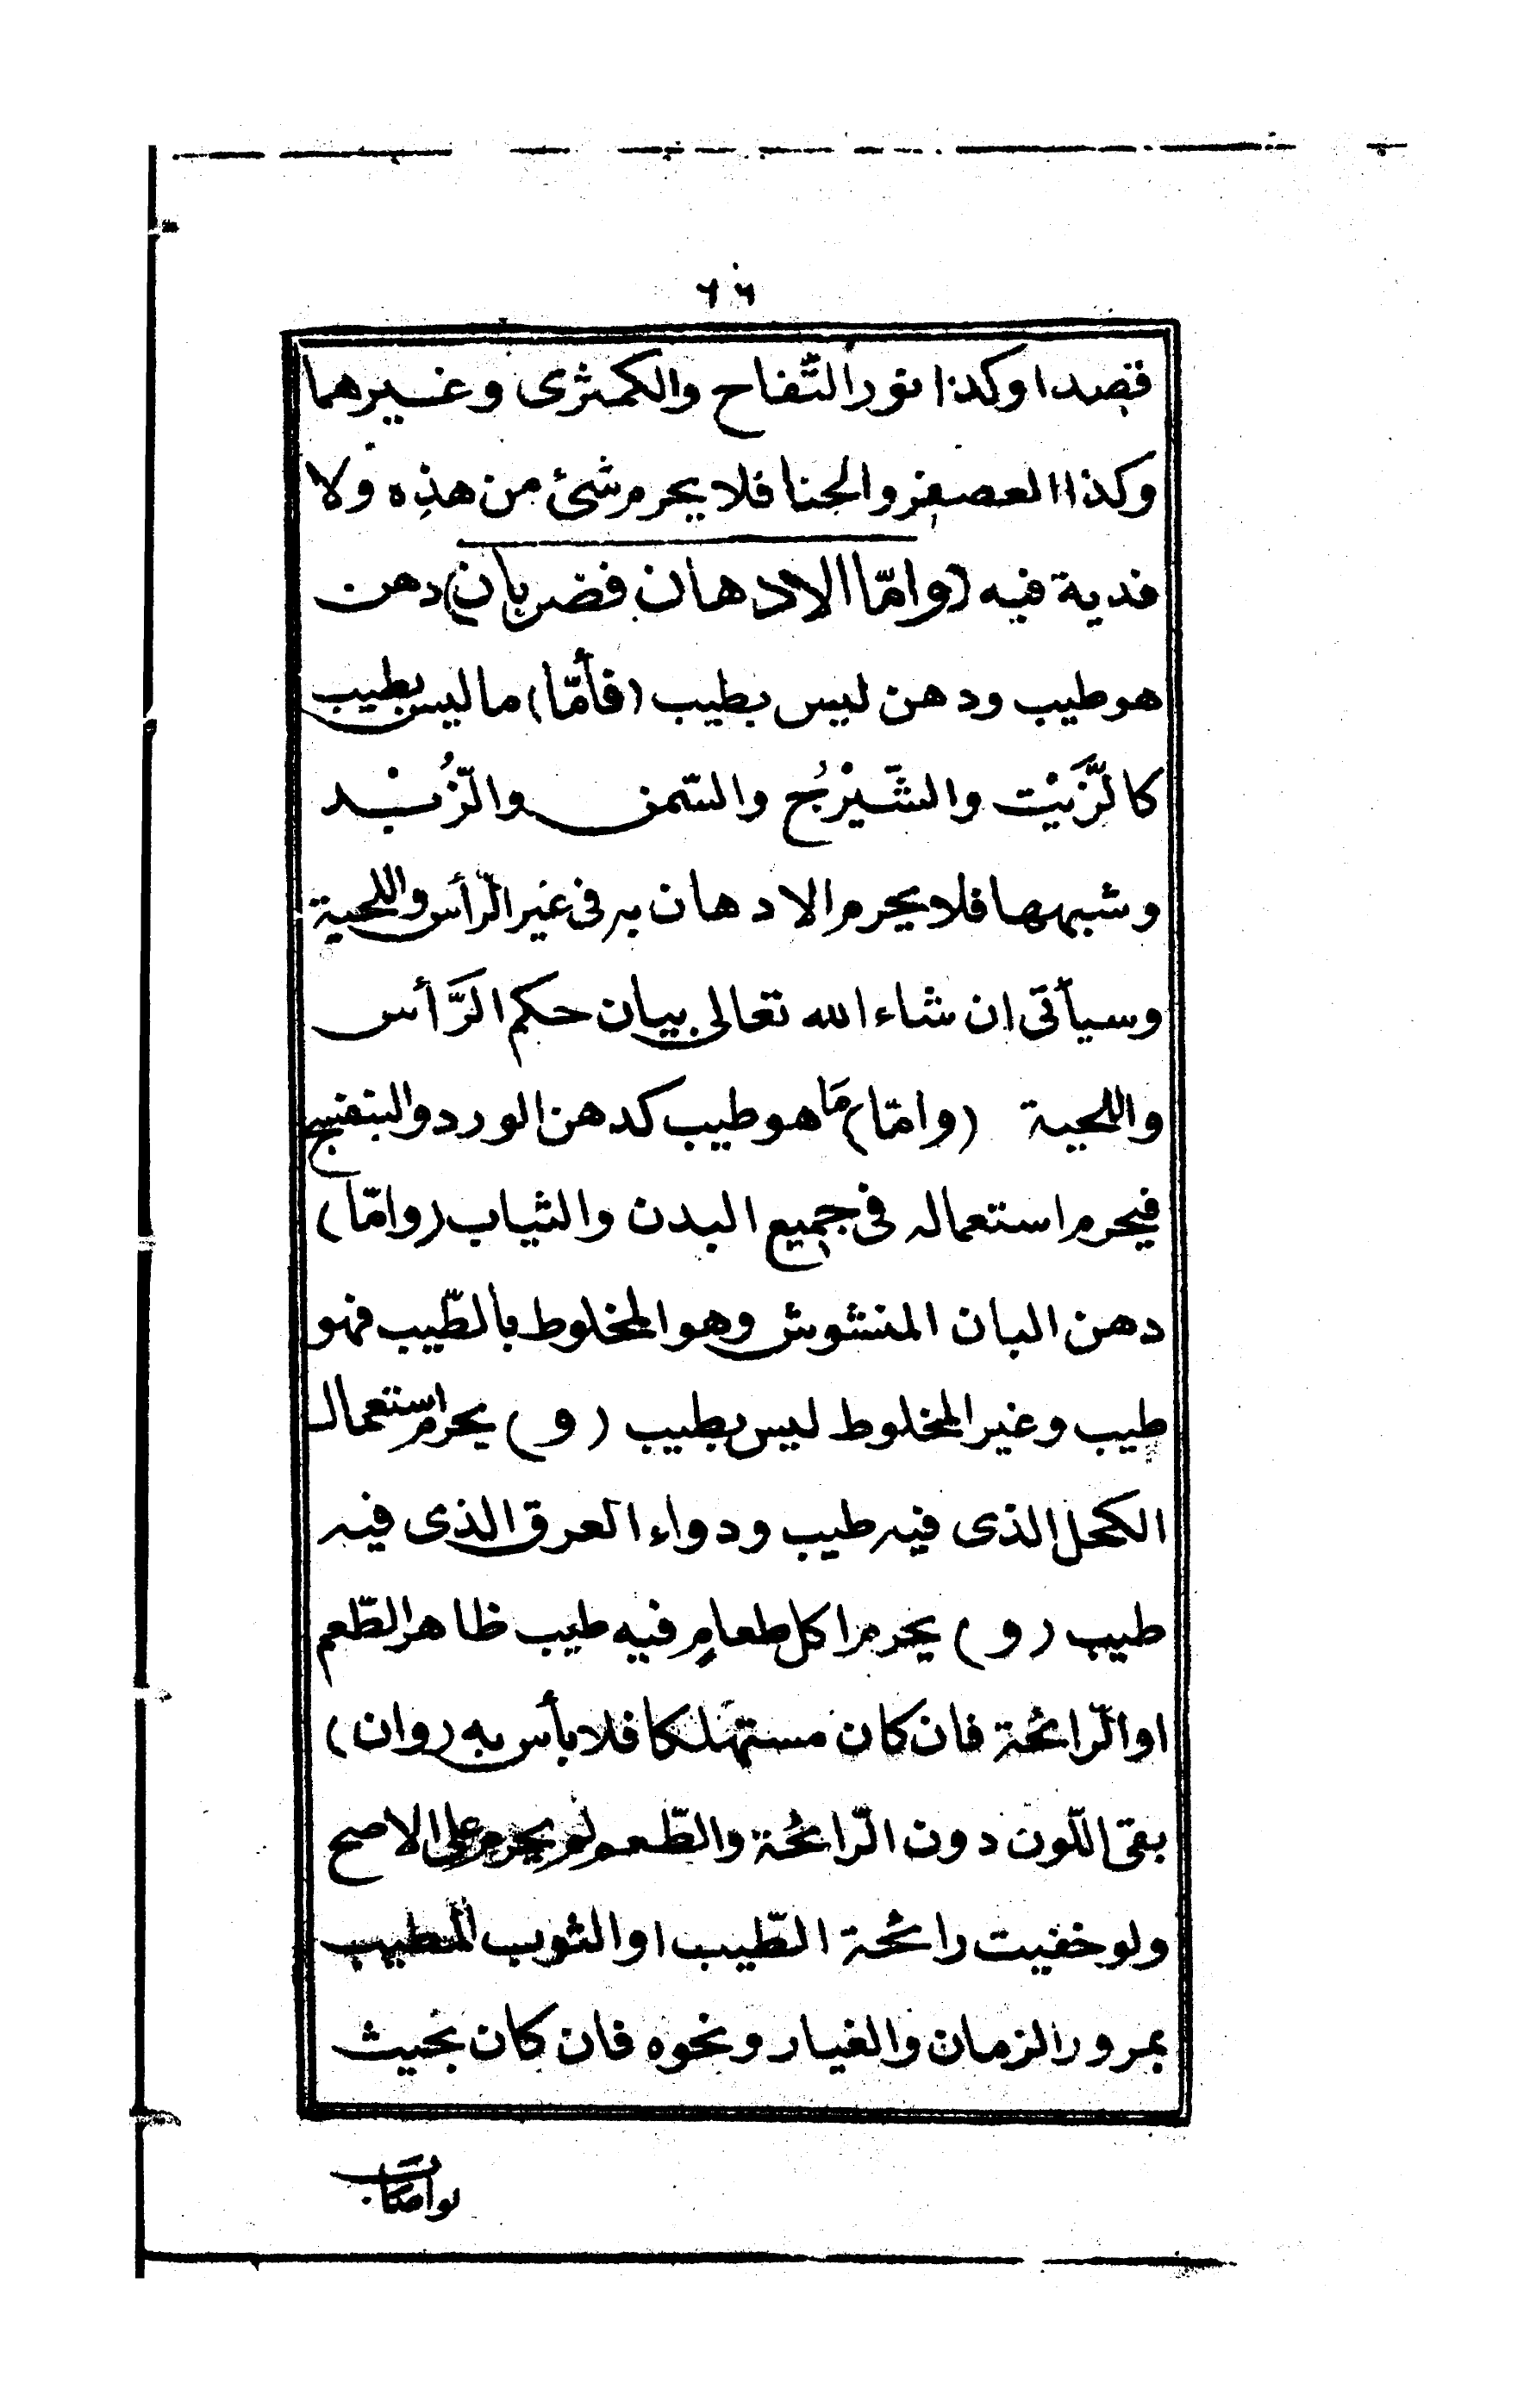 ٦٦
قصدا وكذا نور التّفاح والكمثرى وغيرهما
وكذا العصفر والحنا فلا يحرم شئ من هذه ولا
فدية فيه (وامّا الادهان فضربان) دهن
هو طيب ودهن ليس بطيب (فأمّا) ما ليس بطيب
كالزَّيْت والشَّيْرَجُ والسّمن والزُّبْد
وشبهها فلا يحرم الادهان به فى غير الرّأس واللحية
وسيأتى ان شاء الله تعالى بيان حكم الرَّأس
واللحية (وامّا) مَا هو طيب كدهن الورد والبنفسج
فيحرم استعماله فى جميع البدن والثياب (وامّا)
دهن البان المنشوش وهو المخلوط بالطّيب فهو
طيب وغير المخلوط ليس بطيب (و) يحرم استعمال
الكحل الذى فيه طيب ودواء العرق الذى فيه
طيب (و) يحرم اكل طعامٍ فيه طيب ظاهر الطّعم
او الرّائحة فان كان مستهلكا فلا بأس به (وان)
بقى اللّون دون الرّائحة والطّعم لم يحرم على الاصح
ولو خفيت رائحة الطّيب او الثوب المطيب
بمرور الزمان والغبار ونحوه فان كان بحيث
لو اصابـ